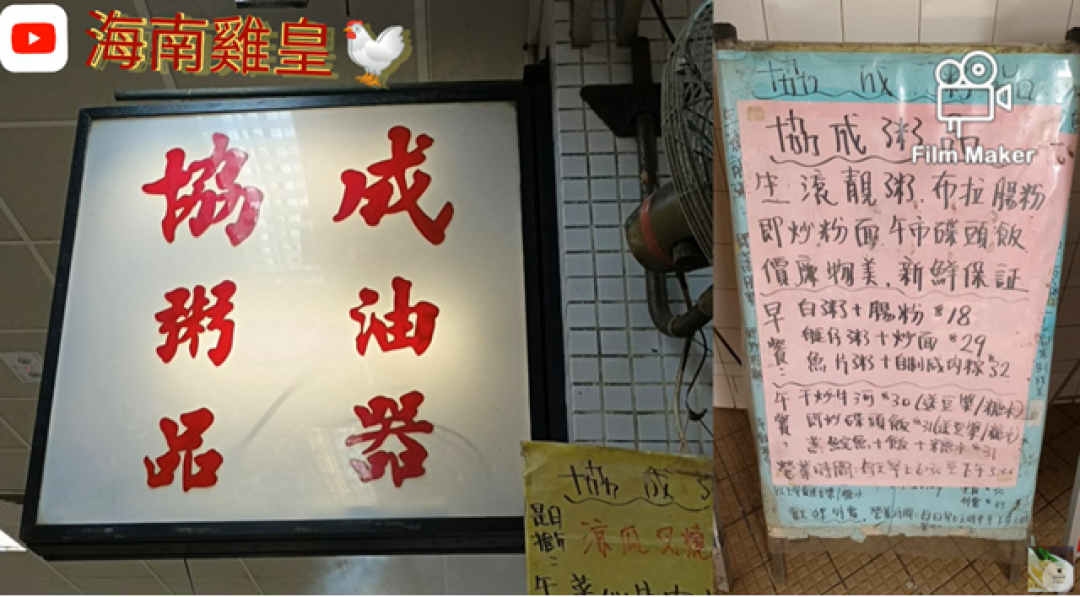 海南雞皇
協成
粥油
品器
協成
涼瓜叉燒
協成
Film Maker
協成粥品
生滾靚粥.布拉腸粉
即炒粉面午市碟頭飯
價廉物美.新鮮保証
早餐:
白粥+腸粉$18
艇仔粥+炒面$29
魚片粥+自制咸肉粽$32
午餐:
干炒牛河$30(送豆漿/糖水)
即炒碟頭飯$31(送豆漿/糖水)
蒸鯇魚+飯+糖水$31
營業時間:
歡迎外賣.